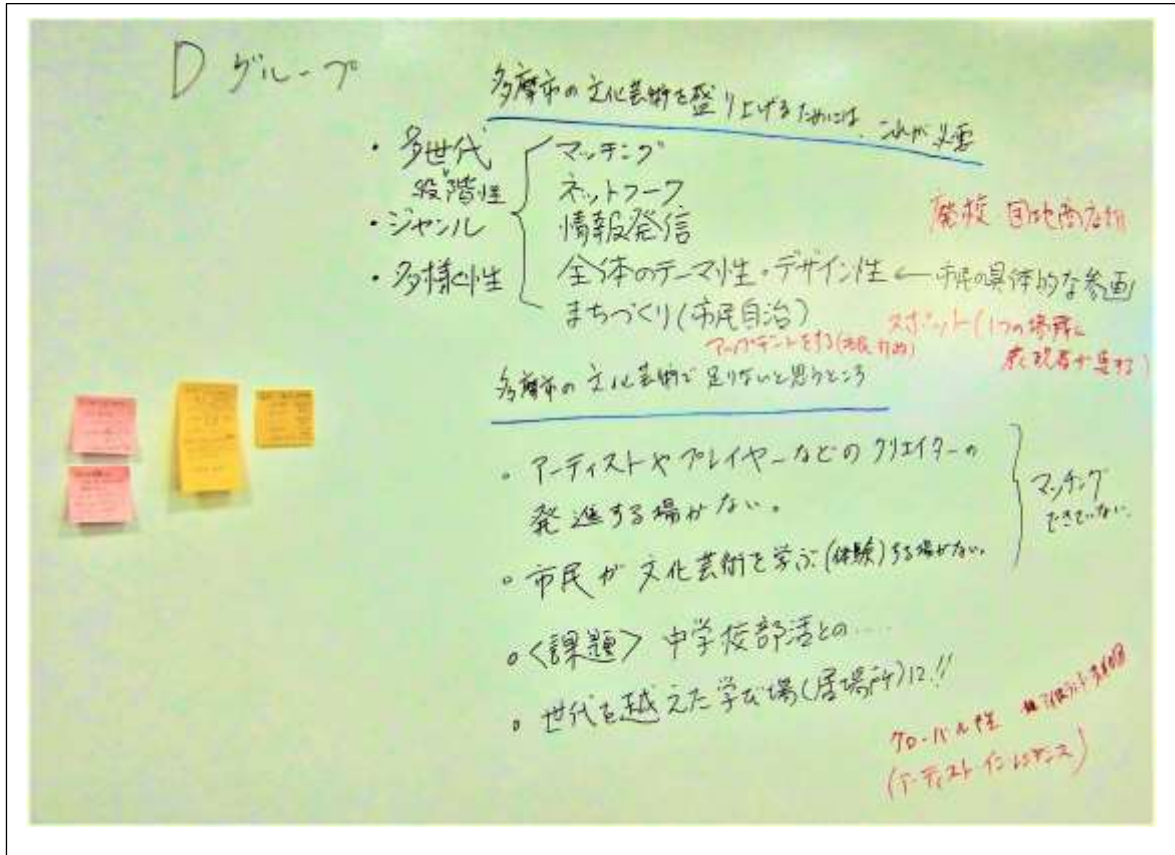 Dグループ
多摩市の文化芸術を盛り上げるためには、これが必要
・多世代
段階性
・ジャンル
・多様性
マッチング
ネットワーク
情報発信
全体のテーマ性・デザイン性 ← 市民の具体的な参画
まちづくり(市民自治)
廃校 団地商店街
スポット(1つの場所に
表現者が集る)
アップデートをする
多摩市の文化芸術で足りないと思うところ
○ アーティストやプレイヤーなどのクリエイターの
発進する場がない。
○ 市民が文化芸術を学ぶ(体験)する場がない。
マッチング
できていない。
○ <課題> 中学校部活との……
○ 世代を越えた学び場(居場所)に!!
グローバル性
(アーティストインレジデンス)